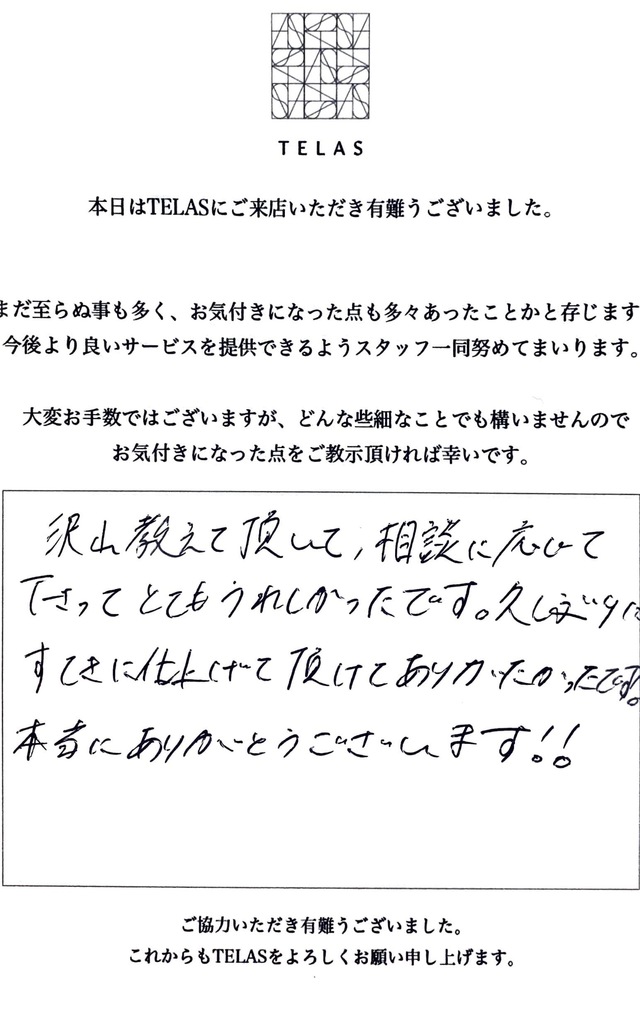 TELAS
本日はTELASにご来店いただき有難うございました。
まだ至らぬ事も多く、お気付きになった点も多々あったことかと存じます
今後より良いサービスを提供できるようスタッフ一同努めてまいります。
大変お手数ではございますが、どんな些細なことでも構いませんので
お気付きになった点をご教示頂ければ幸いです。
沢山教えて頂いて、相談に応じて
下さってとてもうれしかったです。久しぶりに
すてきに仕上げて頂けてありがたかったです。
本当にありがとうございます!!
ご協力いただき有難うございました。
これからもTELASをよろしくお願い申し上げます。